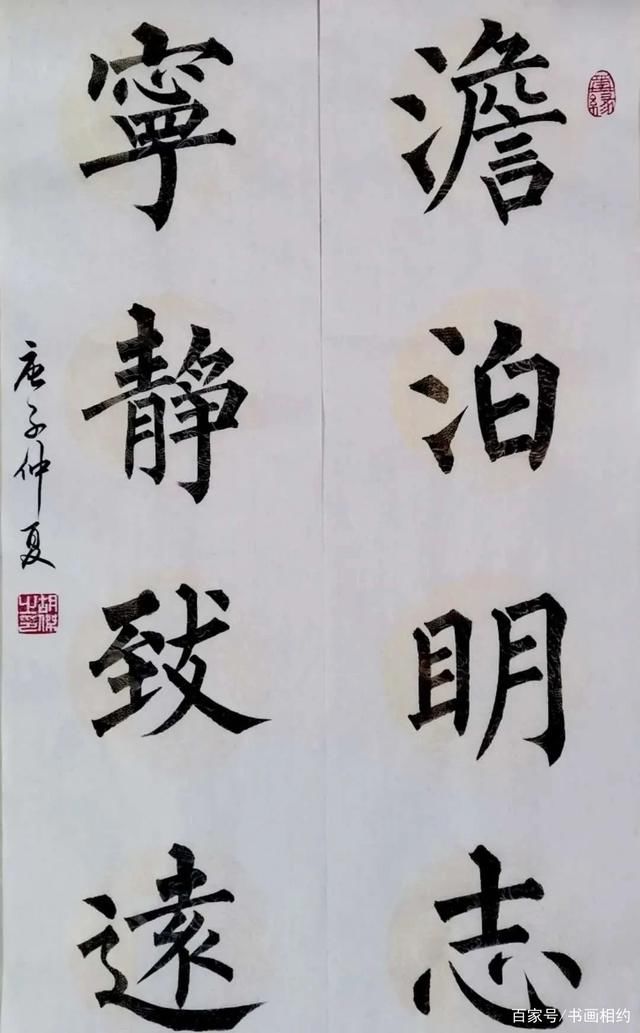 澹泊明志
寧靜致遠
庚子仲夏
胡傑之印
百家号/书画相约